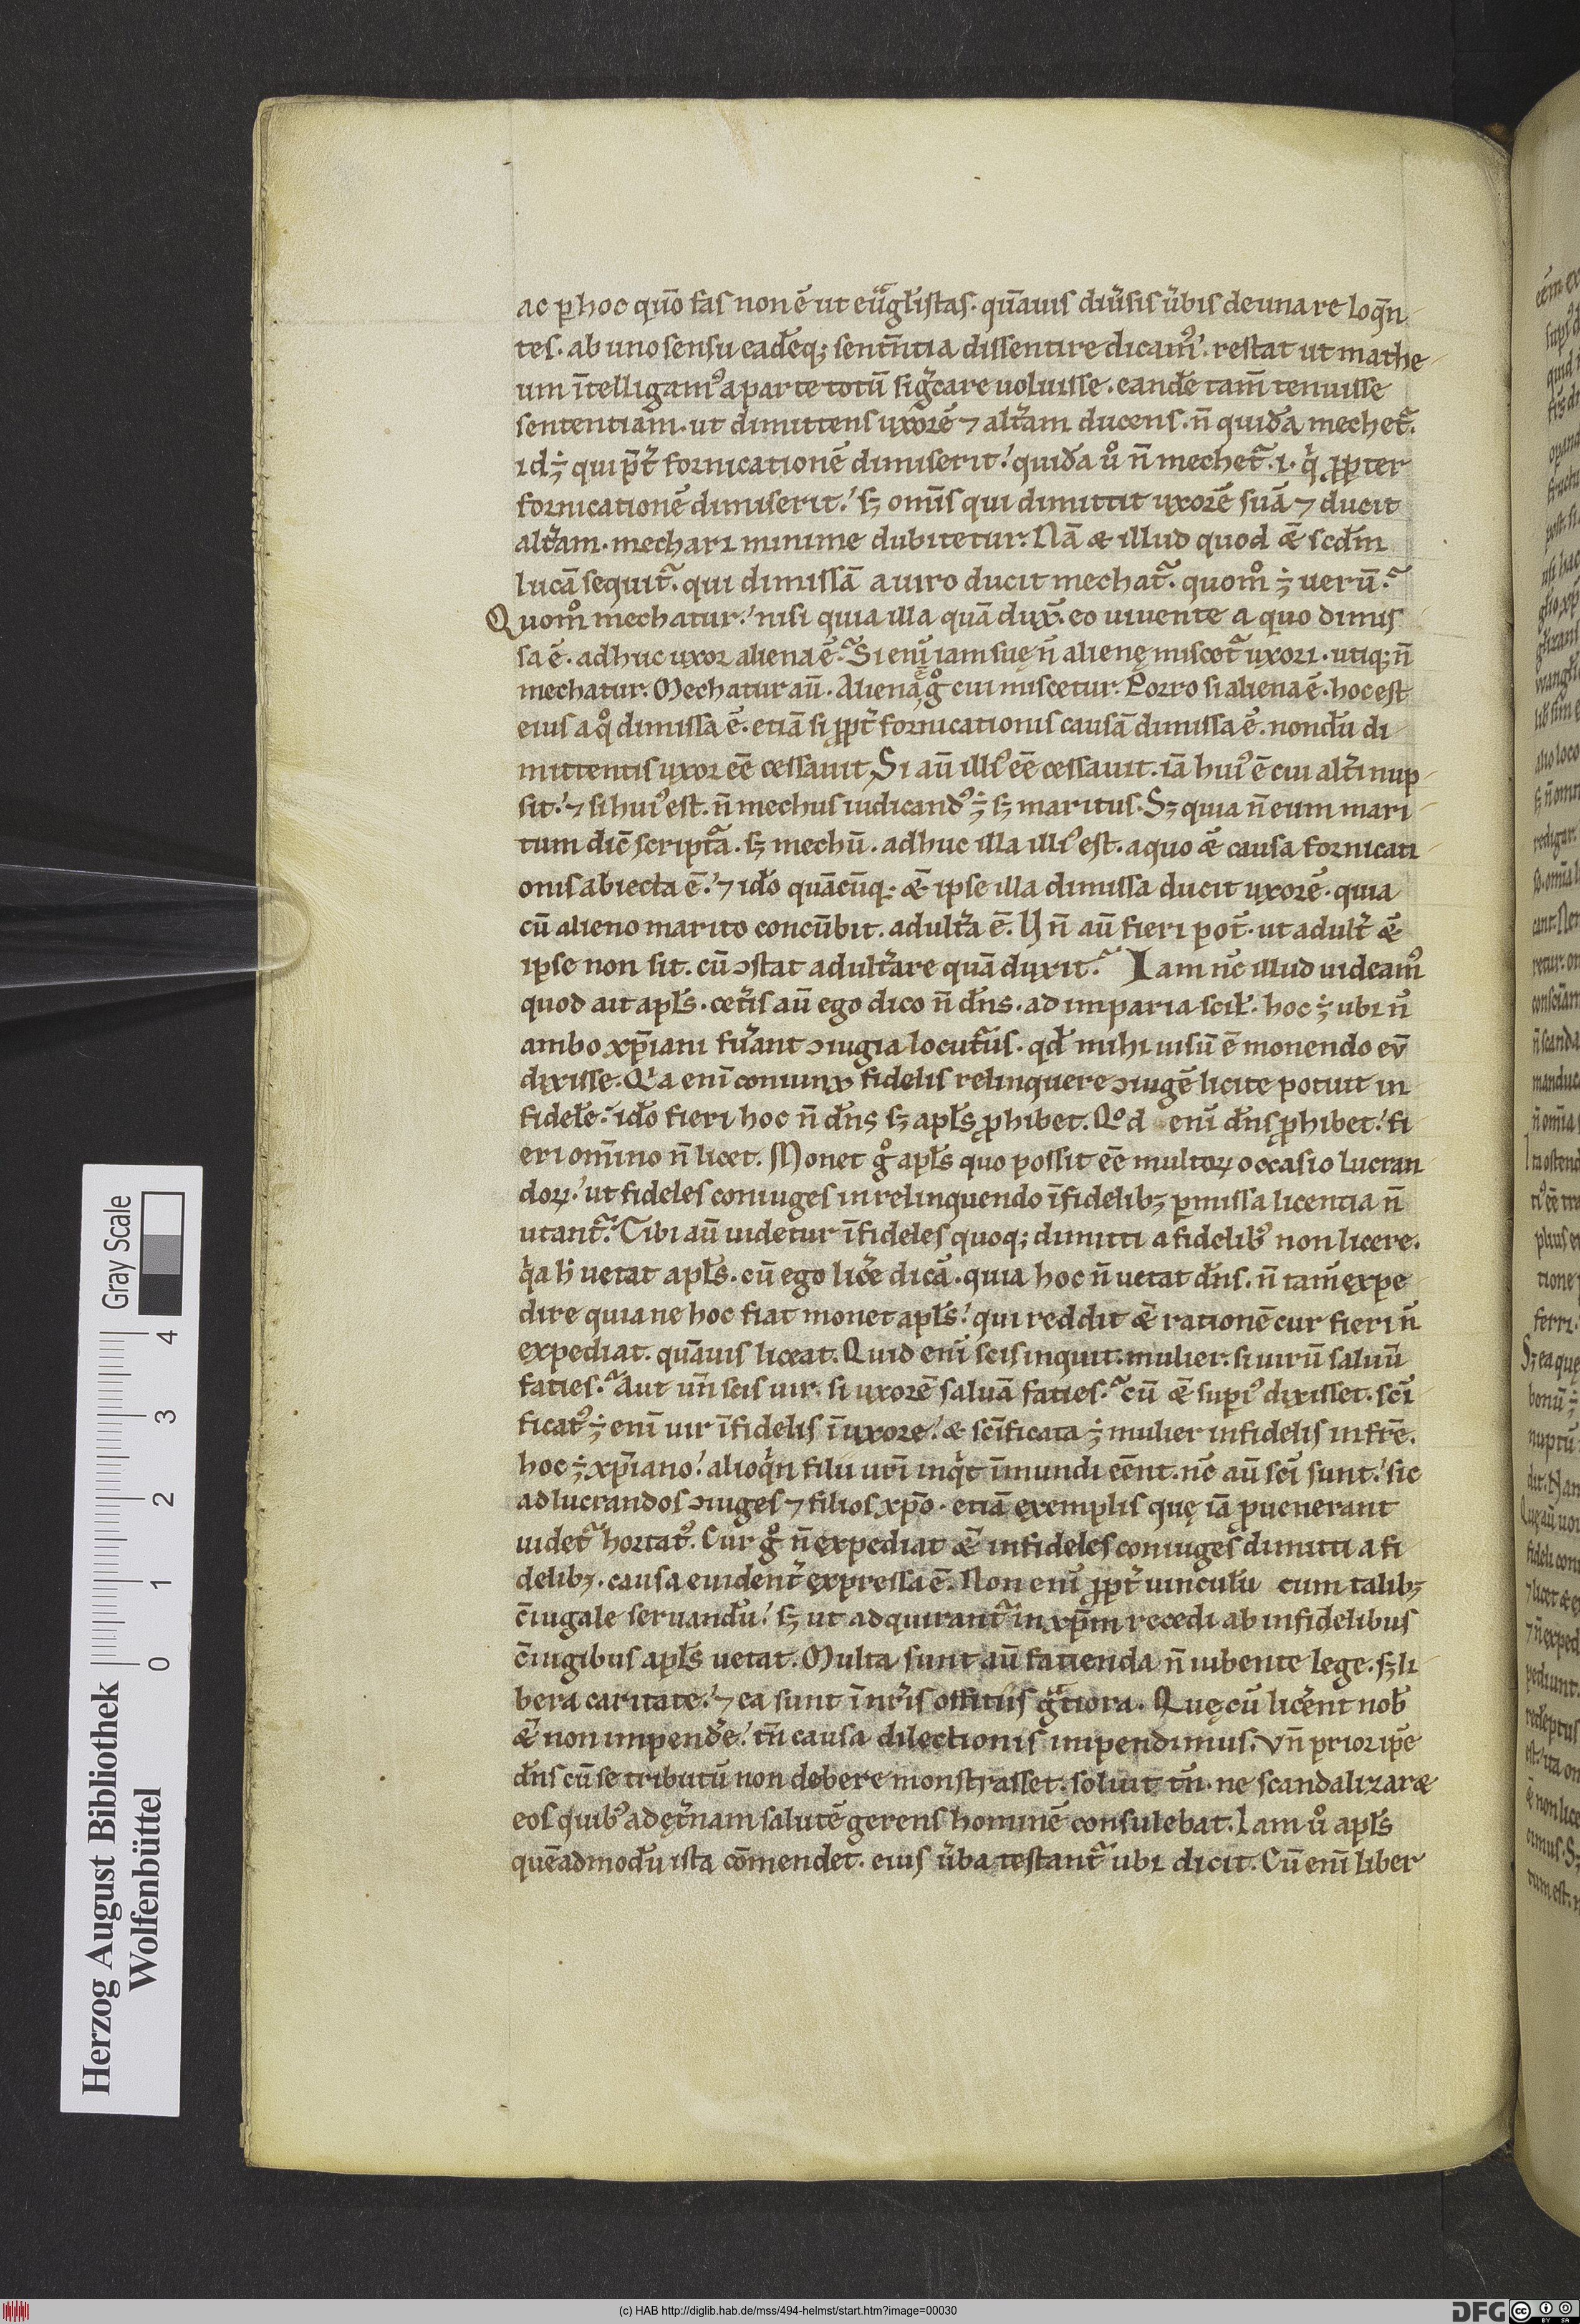 ac ꝑ hoc quō fas non ē ut eu̅gl̅istas. quāuis diu̅sis u̅bis de una re loq̅n
tes. ab uno sensu eade̅q; sent̅ntia dissentire dicam᷒. restat ut mathe
um i̅telligam᷒ a parte totū sig̅care uoluisse. eande̅ tam̅ tenuisse
sententiam. ut dimittens uxorē ⁊ alt̅am ducens. n̅ quida̅ mechet̅.
id ÷ qui p̅t̅ fornicationē dimiserit. quida̅ ů n̅ mechet̅. i. q̅ ꝓpter
fornicationē dimiserit. s; omi̅s qui dimittit uxorē suā ⁊ ducit
alt̅am. mechari minime dubitetur. Nā & illud quod &̅ scd̅m
lucā sequit̅. qui dimissā a uiro ducit mechat̅. quom̊ ÷ uerū.
Quom̊ mechatur. nisi quia illa quā dux̅. eo uiuente a quo dimis
sa ē. adhuc uxor aliena ē. Si eni̅ iam suę n̅ alienę miscet̅ uxori. utiq; n̅
mechatur. Mechatur au̅. Aliena ē g̊ cui miscetur. Porro si aliena ē. hoc est
eius a q̊ dimissa ē. etiā si ꝓpt̅ fornicationis causā dimissa ē. nondu̅ di
mittentis uxor ee̅ cessauit. Si au̅ illi᷒ ee̅ cessauit. iā hui᷒ ē cui alt̅i nup
sit. ⁊ si hui᷒ est. n̅ mechus iudicand᷒ ÷ s; maritus. S; quia n̅ eum mari
tum dic̅ script̅a. s; mechū. adhuc illa illi᷒ est. a quo &̅ causa fornicati
onis abiecta ē. ⁊ ido̅ quācu̅q; &̅ ipse illa dimissa ducit uxorē. quia
cū alieno marito concu̅bit. adult̅a ē. Hn̅ au̅ fieri pot̅. ut adult̅ &̅
ipse non sit. cū ꝯstat adult̅are quā duxit. Iam nc̅ illud uideam᷒
quod ait apl̅s. cet̅is au̅ ego dico n̅ dn̅s. ad imparia scil̅. hoc ÷ ubi n̅
ambo xp̅iani fu̅ant ꝯiugia locut̅us. qd̅ mihi uisū ē monendo eu̅
dixisse. Q̅a eni̅ coniunx fidelis relinquere ꝯiugē licite potuit in
fidele̅. ido̅ fieri hoc n̅ dn̅s s; apl̅s ꝓhibet. Qod eni̅ dn̅s ꝓhibet. fi
eri omi̅no n̅ licet. Monet g̊ apl̅s quo possit ee̅ multoꝝ occasio lucran
doꝝ. ut fideles coniuges in relinquendo i̅fidelib; ꝑmissa licentia n̅
utant̅. Tibi au̅ uidetur i̅fideles quoq; dimitti a fidelib᷒ non licere.
q̅a h̅ uetat apl̅s. cū ego lic̅e dicā. quia hoc n̅ uetat dn̅s. n̅ tam̅ expe
dire quia ne hoc fiat monet apl̅s. qui reddit &̅ rationē cur fieri n̅
expediat. quāuis liceat. Quid eni̅ scis inquit. mulier. si uirū saluū
faties. Aut un̅ scis uir. si uxorē saluā faties. cū &̅ supi᷒ dixisset. sci̅
ficat᷒ ÷ eni̅ uir i̅fidelis i̅ uxore. & sci̅ficata ÷ mulier infidelis in fr̅e.
hoc ÷ xp̅iano. alioq̅n filii ur̅i inq̅t i̅mundi ee̅nt. nc̅ au̅ sci̅ sunt. sic
ad lucrandos ꝯiuges ⁊ filios xp̅o. etiā exemplis quę iā ꝓuenerant
uidet̅ hortat᷒. Cur g̊ n̅ expediat &̅ infideles coniuges dimitti a fi
delib;. causa euident̅ expressa ē. Non eni̅ ꝓpt̅ uinculu̅ cum talib;
c̅iugale seruandu̅. s; ut adquirant̅ in xp̅m recedi ab infidelibus
c̅iugibus apl̅s uetat. Multa sunt au̅ fatienda n̅ iubente lege. s; li
bera caritate. ⁊ ea sunt i̅ nr̅is offitiis g̅tiora. Quę cū lic̅ent nob̅
&̅ non impend̅e. tn̅ causa dilectionis impendimus. Vn̅ prior ipe̅
dn̅s cū se tributū non debere monstrasset. soluit tn̅. ne scandalizar&
eos quib᷒ ad ęt̅nam salutē gerens hominē consulebat. Iam ů apl̅s
quēadmodu̅ ista co̅mendet. eius u̅ba testant̅ ubi dicit. Cū eni̅ liber
Herzog August Bibliothek
Wolfenbüttel
0 1 2 3 4
Gray Scale
(c) HAB http://diglib.hab.de/mss/494-helmst/start.htm?image=00030
DFG
cc BY SA